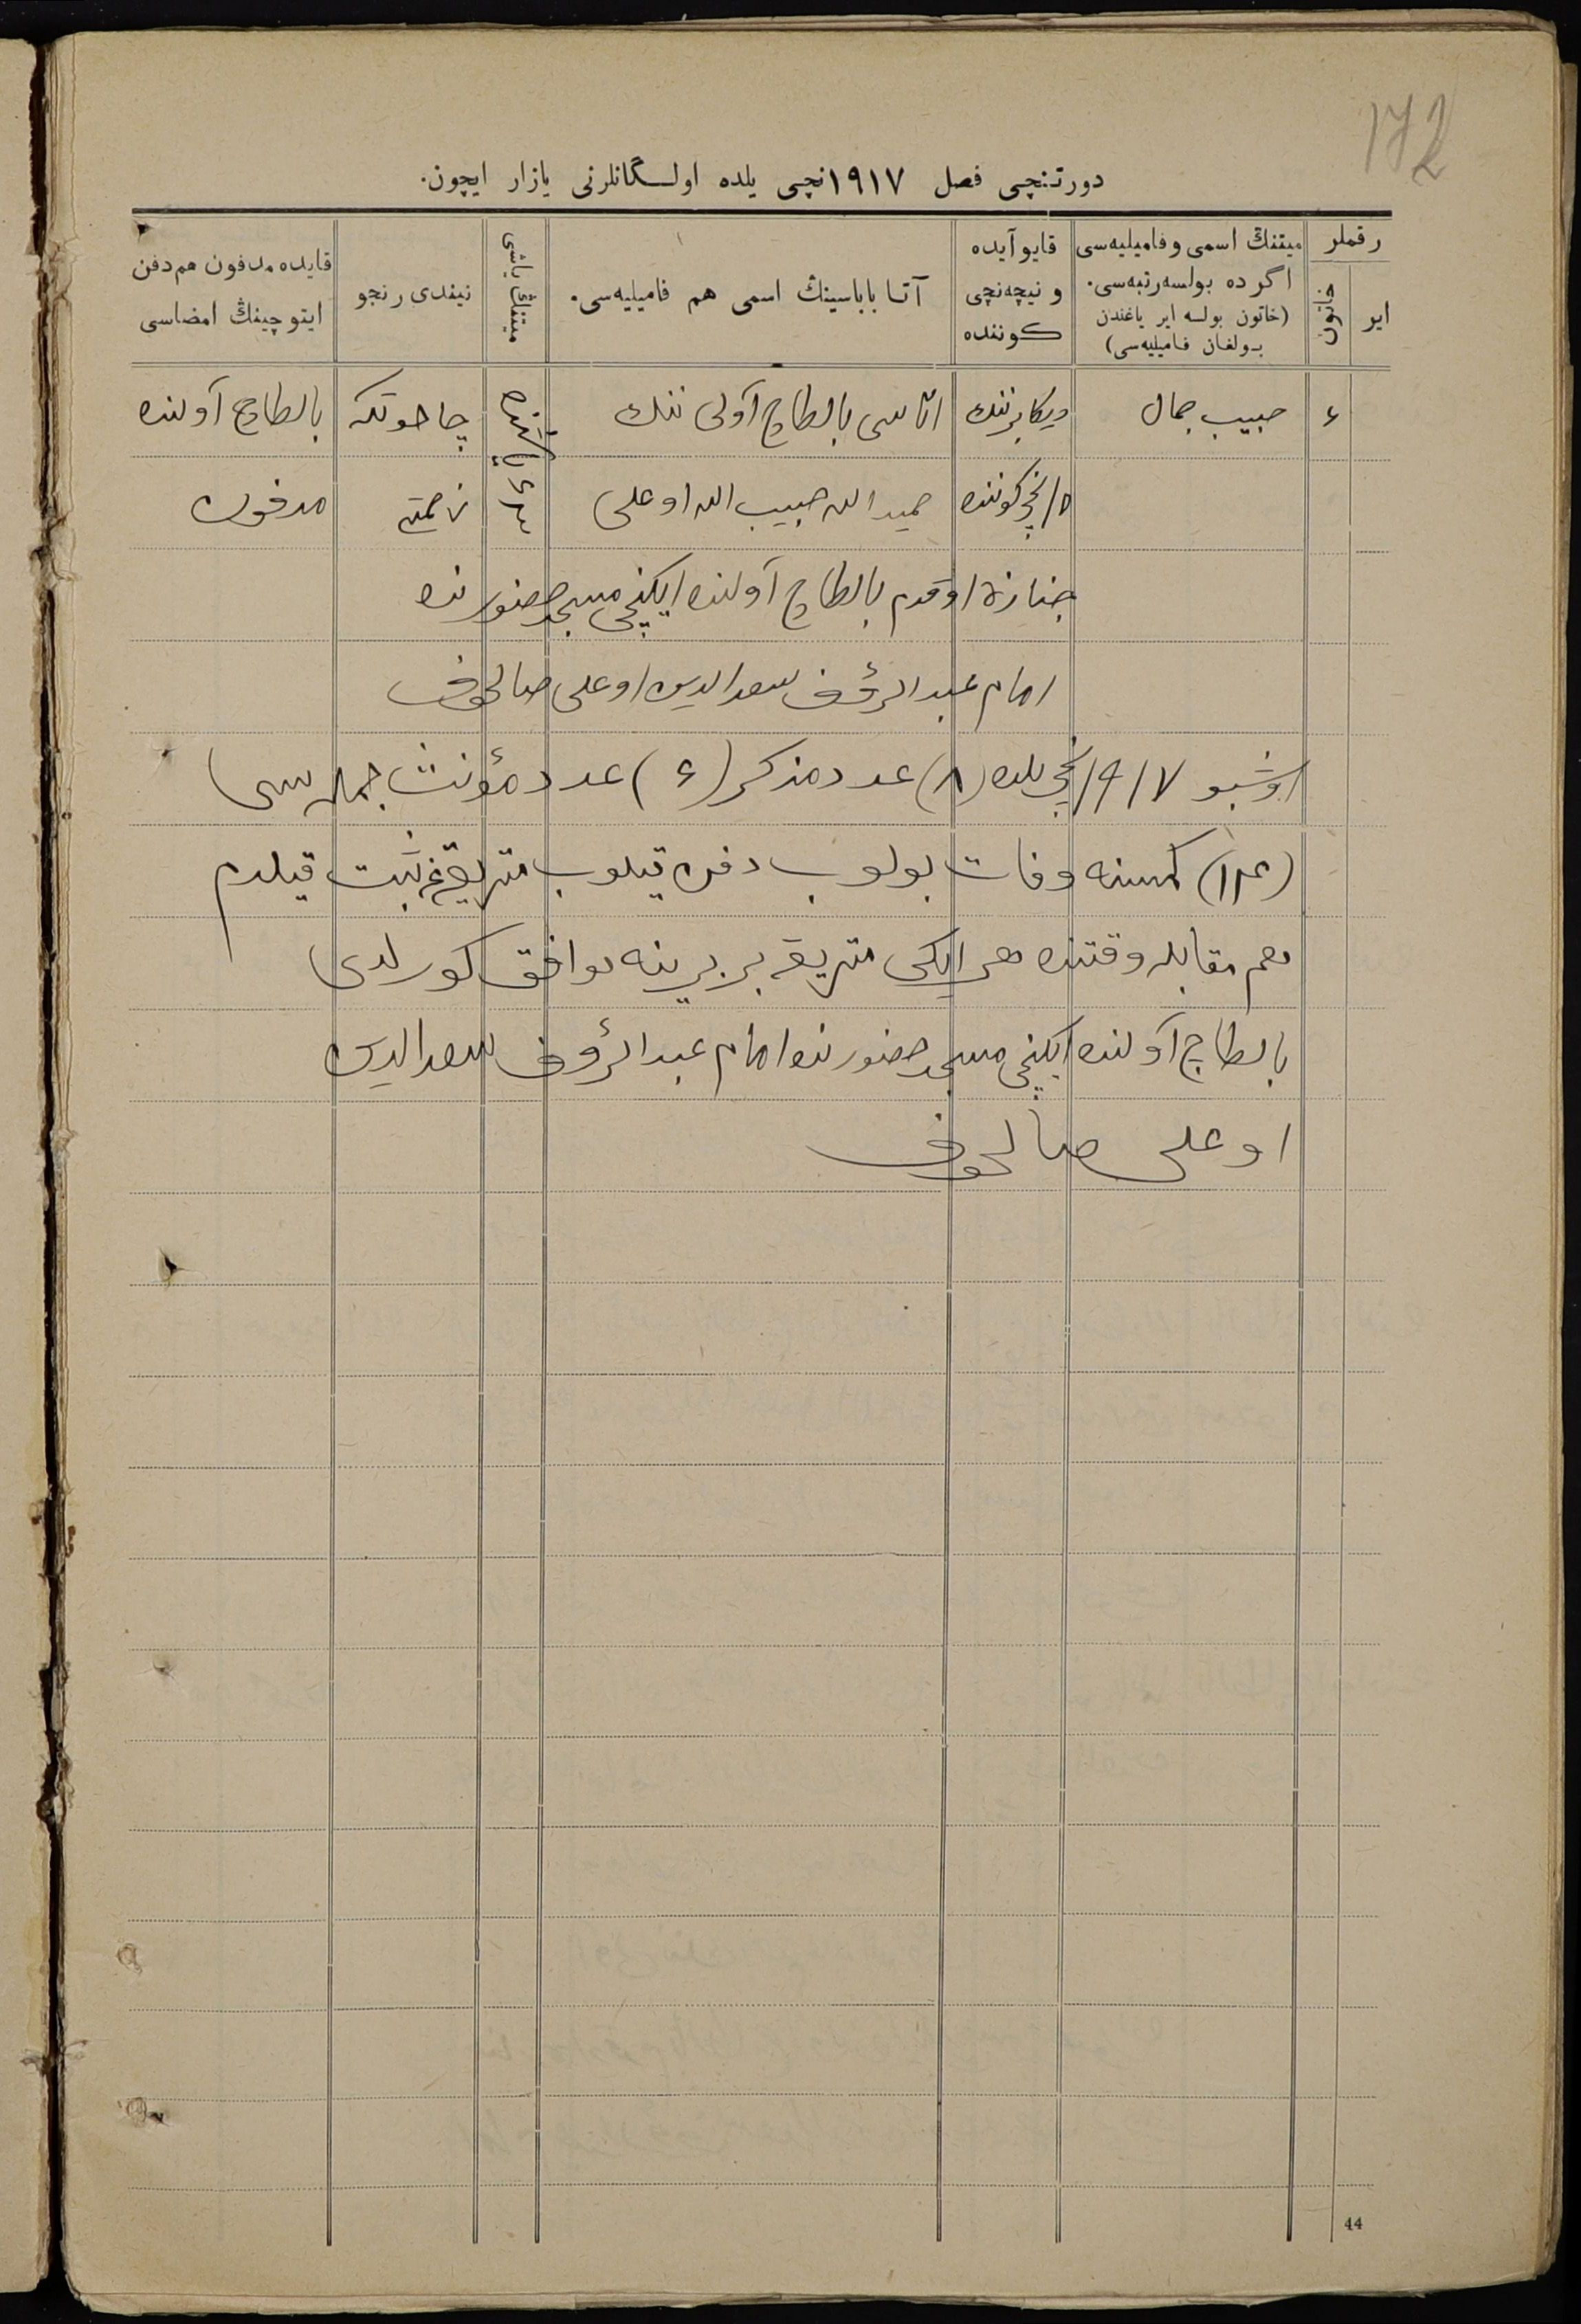 172
دورتنچی فصل ۱۹۱۷نچی یلده اولـــگانلرنی یازار ایچون.
رقملر
ایر
خاتون
میتنڭ اسمی و فامیلیه‌سی
اگر ده بولسه رتبه‌سی.
(خاتون بولسه ایر یاغندن
بـولغان فامیلیه‌سی)
قایو آیده
و نیچه‌نچی
كوننده
آتـا باباسینڭ اسمی هم فامیلیه‌سی.
میتنڭ یاشی
نیندی رنجو
قایده مدفون هم دفن
ایتوچینڭ امضاسی
۴ حبیب جمال دیکابرننك اتاسی بالطاچ آولی ننك ۶۳ یاشنده چاحوتکه بالطاچ آولنده
۱۵نچی کوننده حمید الله حبیب الله اوغلی مدفون
جنازه اوقدم بالطاچ آولنده ایکنچی مسجد حضورنده
امام عبد الرؤف سعد الدین اوغلی صالحوف
اوشبو ۱۹۱۷نچی یلده (۸) عدد مذکر (۴) عدد مؤنث جمله سی
(۱۲) کمسنه وفات بولوب دفن قیلوب متریقه‌غه ثبت قیلدم
هم مقابله وقتنده هر ایکی متریقه بر برینه موافق کورلدی
بالطاچ آولنده ایکنچی مسجد حضورنده امام عبد الرؤف سعد الدین
اوغلی صالحوف
44